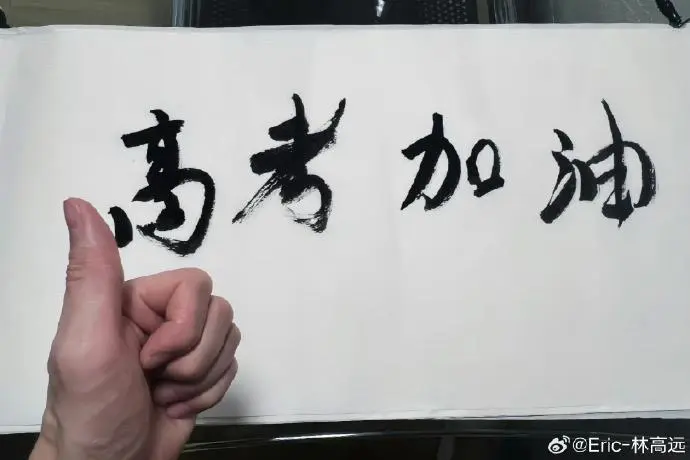 高考加油
@Eric-林高远